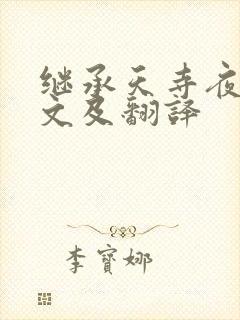 继承天寺夜
文及翻译
李宝娜